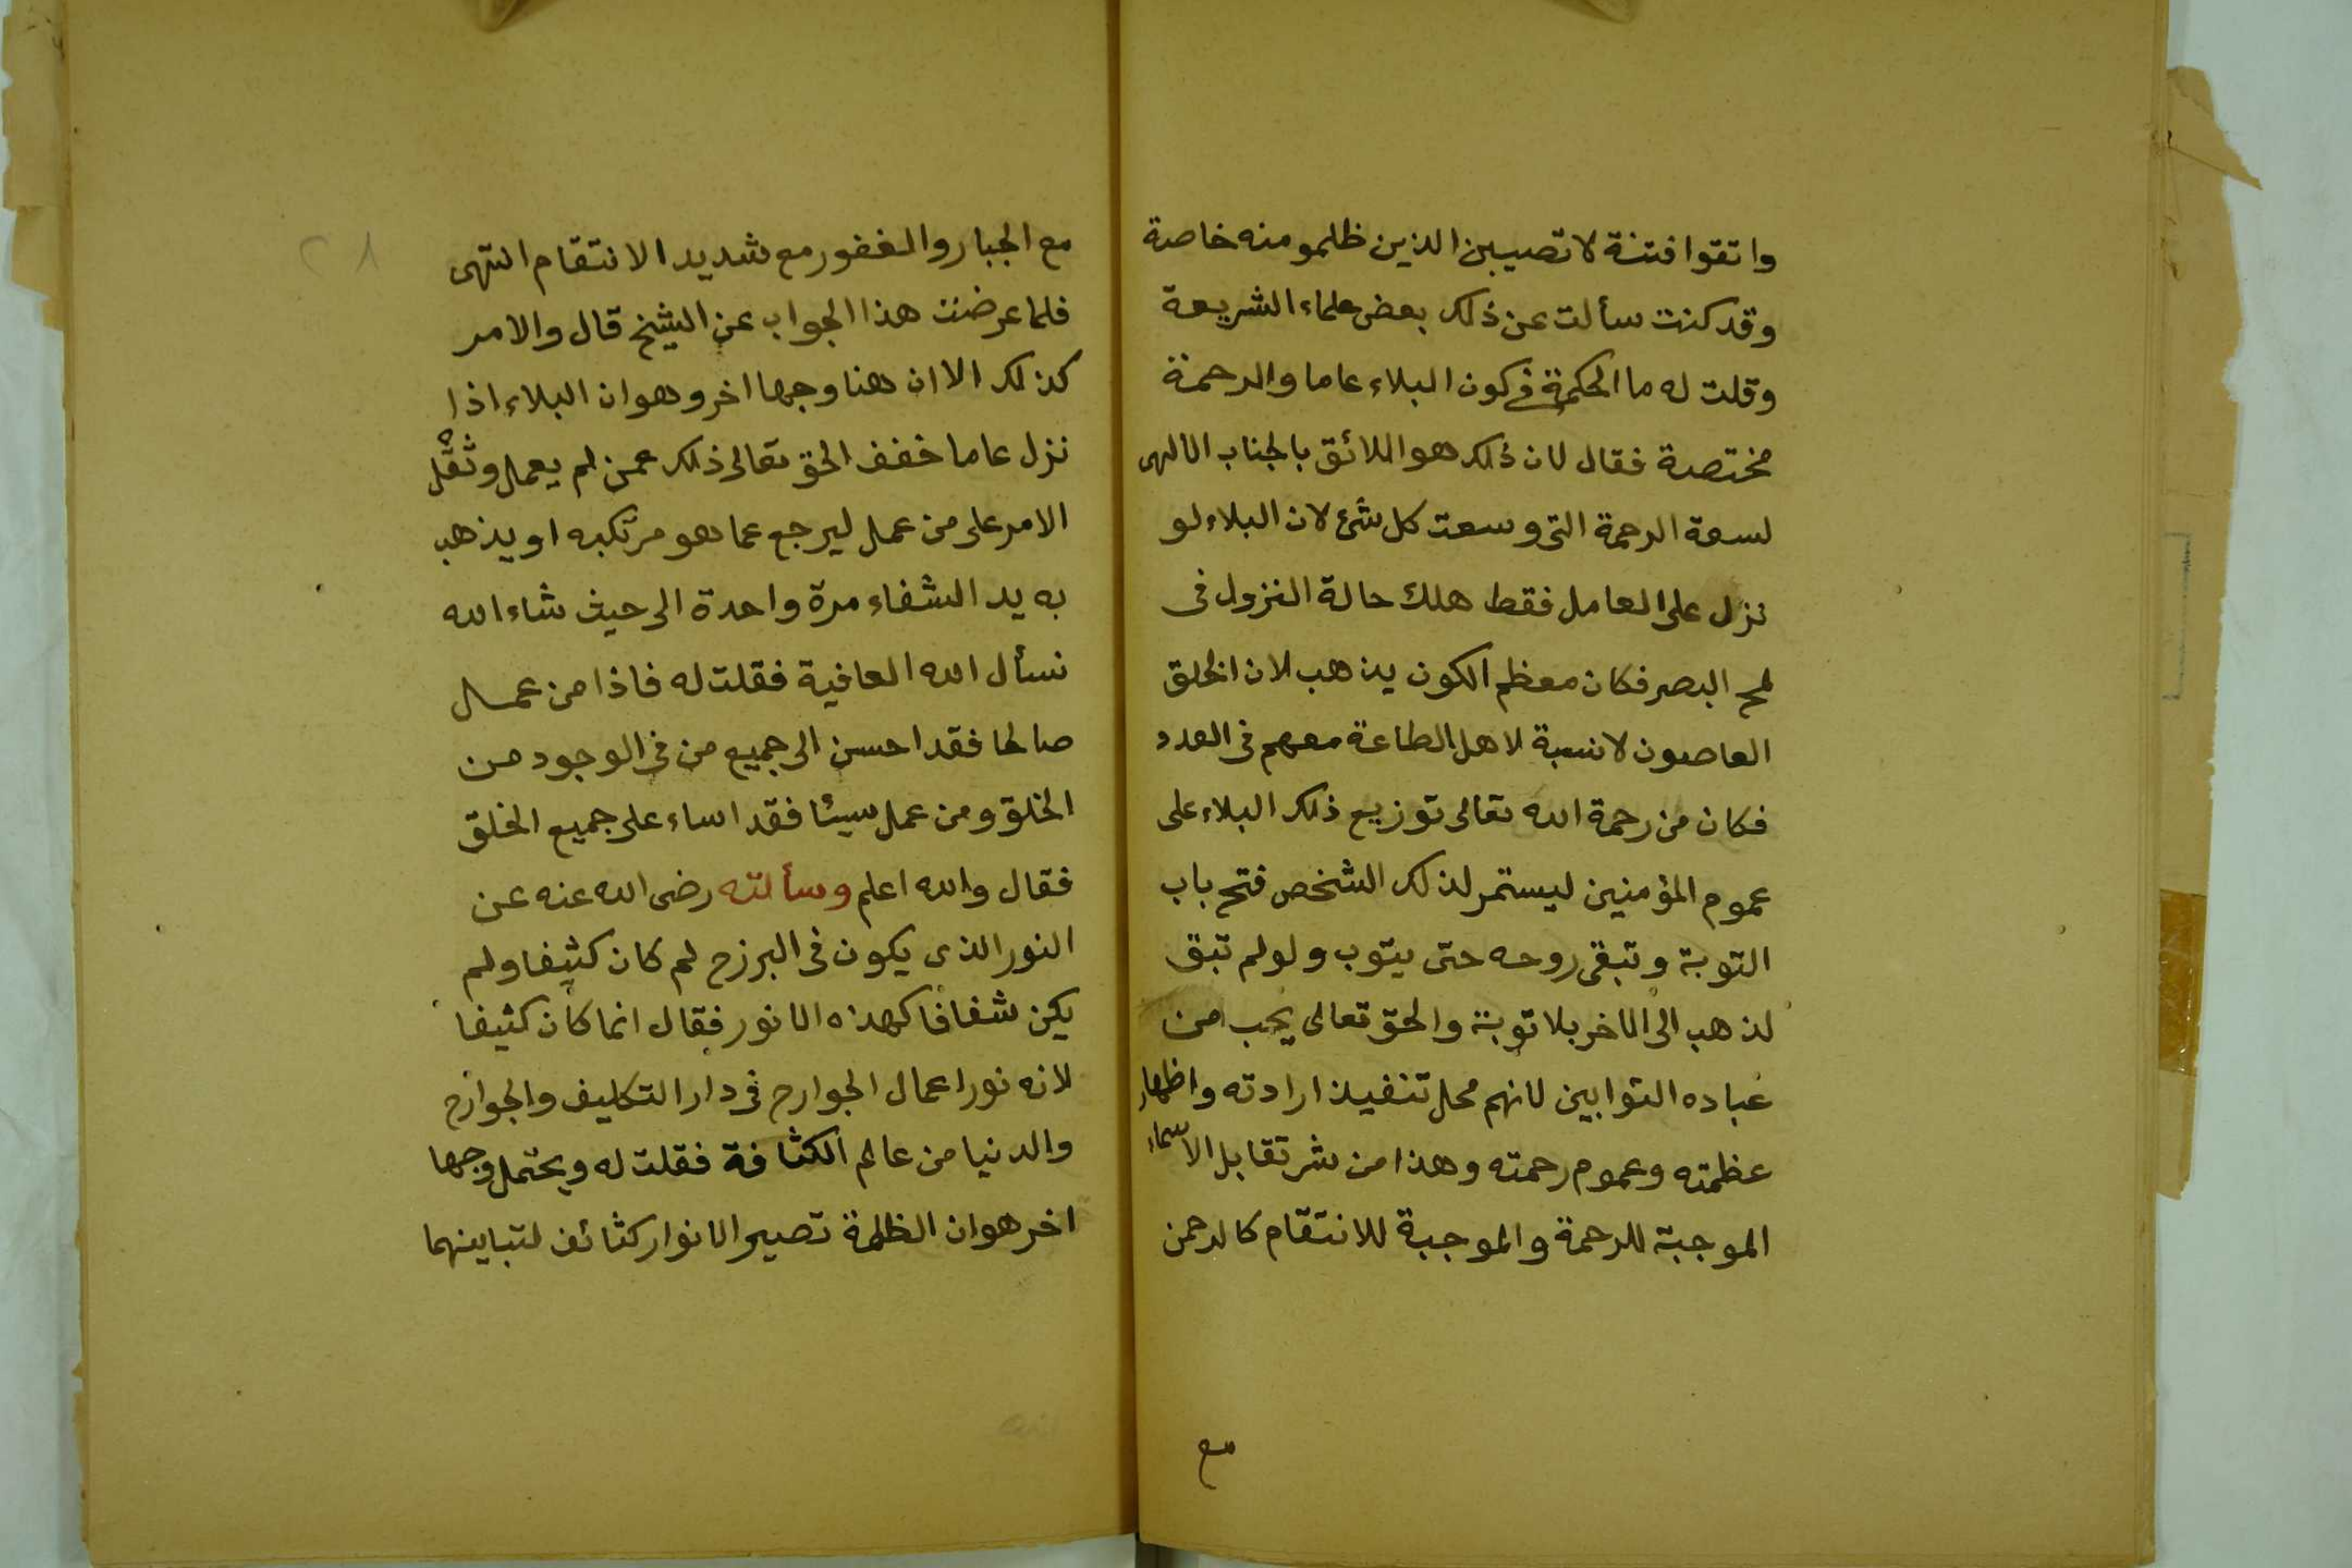 واتقوا فتنة لا تصيبن الذين ظلمو منه خاصة
وقد كنت سألت عن ذلك بعض علماء الشريعة
وقلت له ما الحكمة في كون البلاء عاما والرحمة
مختصة فقال لان ذلك هو اللائق بالجناب الالهى
لسعة الرحمة التى وسعت كل شئ لان البلاء لو
نزل على العامل فقط هلك حالة النزول فى
لمح البصر فكان معظم الكون يذهب لان الخلق
العاصون لا نسبة لاهل الطاعة معهم فى العدد
فكان من رحمة الله تعالى توزيع ذلك البلاء على
عموم المؤمنين ليستمر لذلك الشخص فتح باب
التوبة وتبقى روحه حتى يتوب ولو لم تبق
لذهب الى الاخر بلا توبة والحق تعالى يحب من
عباده التوابين لانهم محل تنفيذ ارادته واظهار
عظمته وعموم رحمته وهذا من شر تقابل الاسماء
الموجبة للرحمة والموجبة للانتقام كالرحمن
مع
٢٨
مع الجبار والغفور مع شديد الانتقام انتهى
فلما عرضت هذا الجواب عن الشيخ قال والامر
كذلك الا ان هنا وجها اخر وهو ان البلاء اذا
نزل عاما خفف الحق تعالى ذلك عمن لم يعمل وثقّل
الامر على من عمل ليرجع عما هو مرتكبه او يذهب
به يد الشفاء مرة واحدة الى حيث شاء الله
نسأل الله العافية فقلت له فاذا من عمل
صالحا فقد احسن الى جميع من فى الوجود من
الخلق ومن عمل سيئا فقد اساء على جميع الخلق
فقال والله اعلم وسألته رضى الله عنه عن
النور الذى يكون فى البرزح لم كان كثيفا ولم
يكن شفافا كهذه الانور فقال انما كان كثيفا
لانه نور اعمال الجوارح فى دار التكليف والجوارح
والدنيا من عالم الكثافة فقلت له ويحتمل وجها
اخر هو ان الظلمة تصير الانوار كثائف لتباينهما